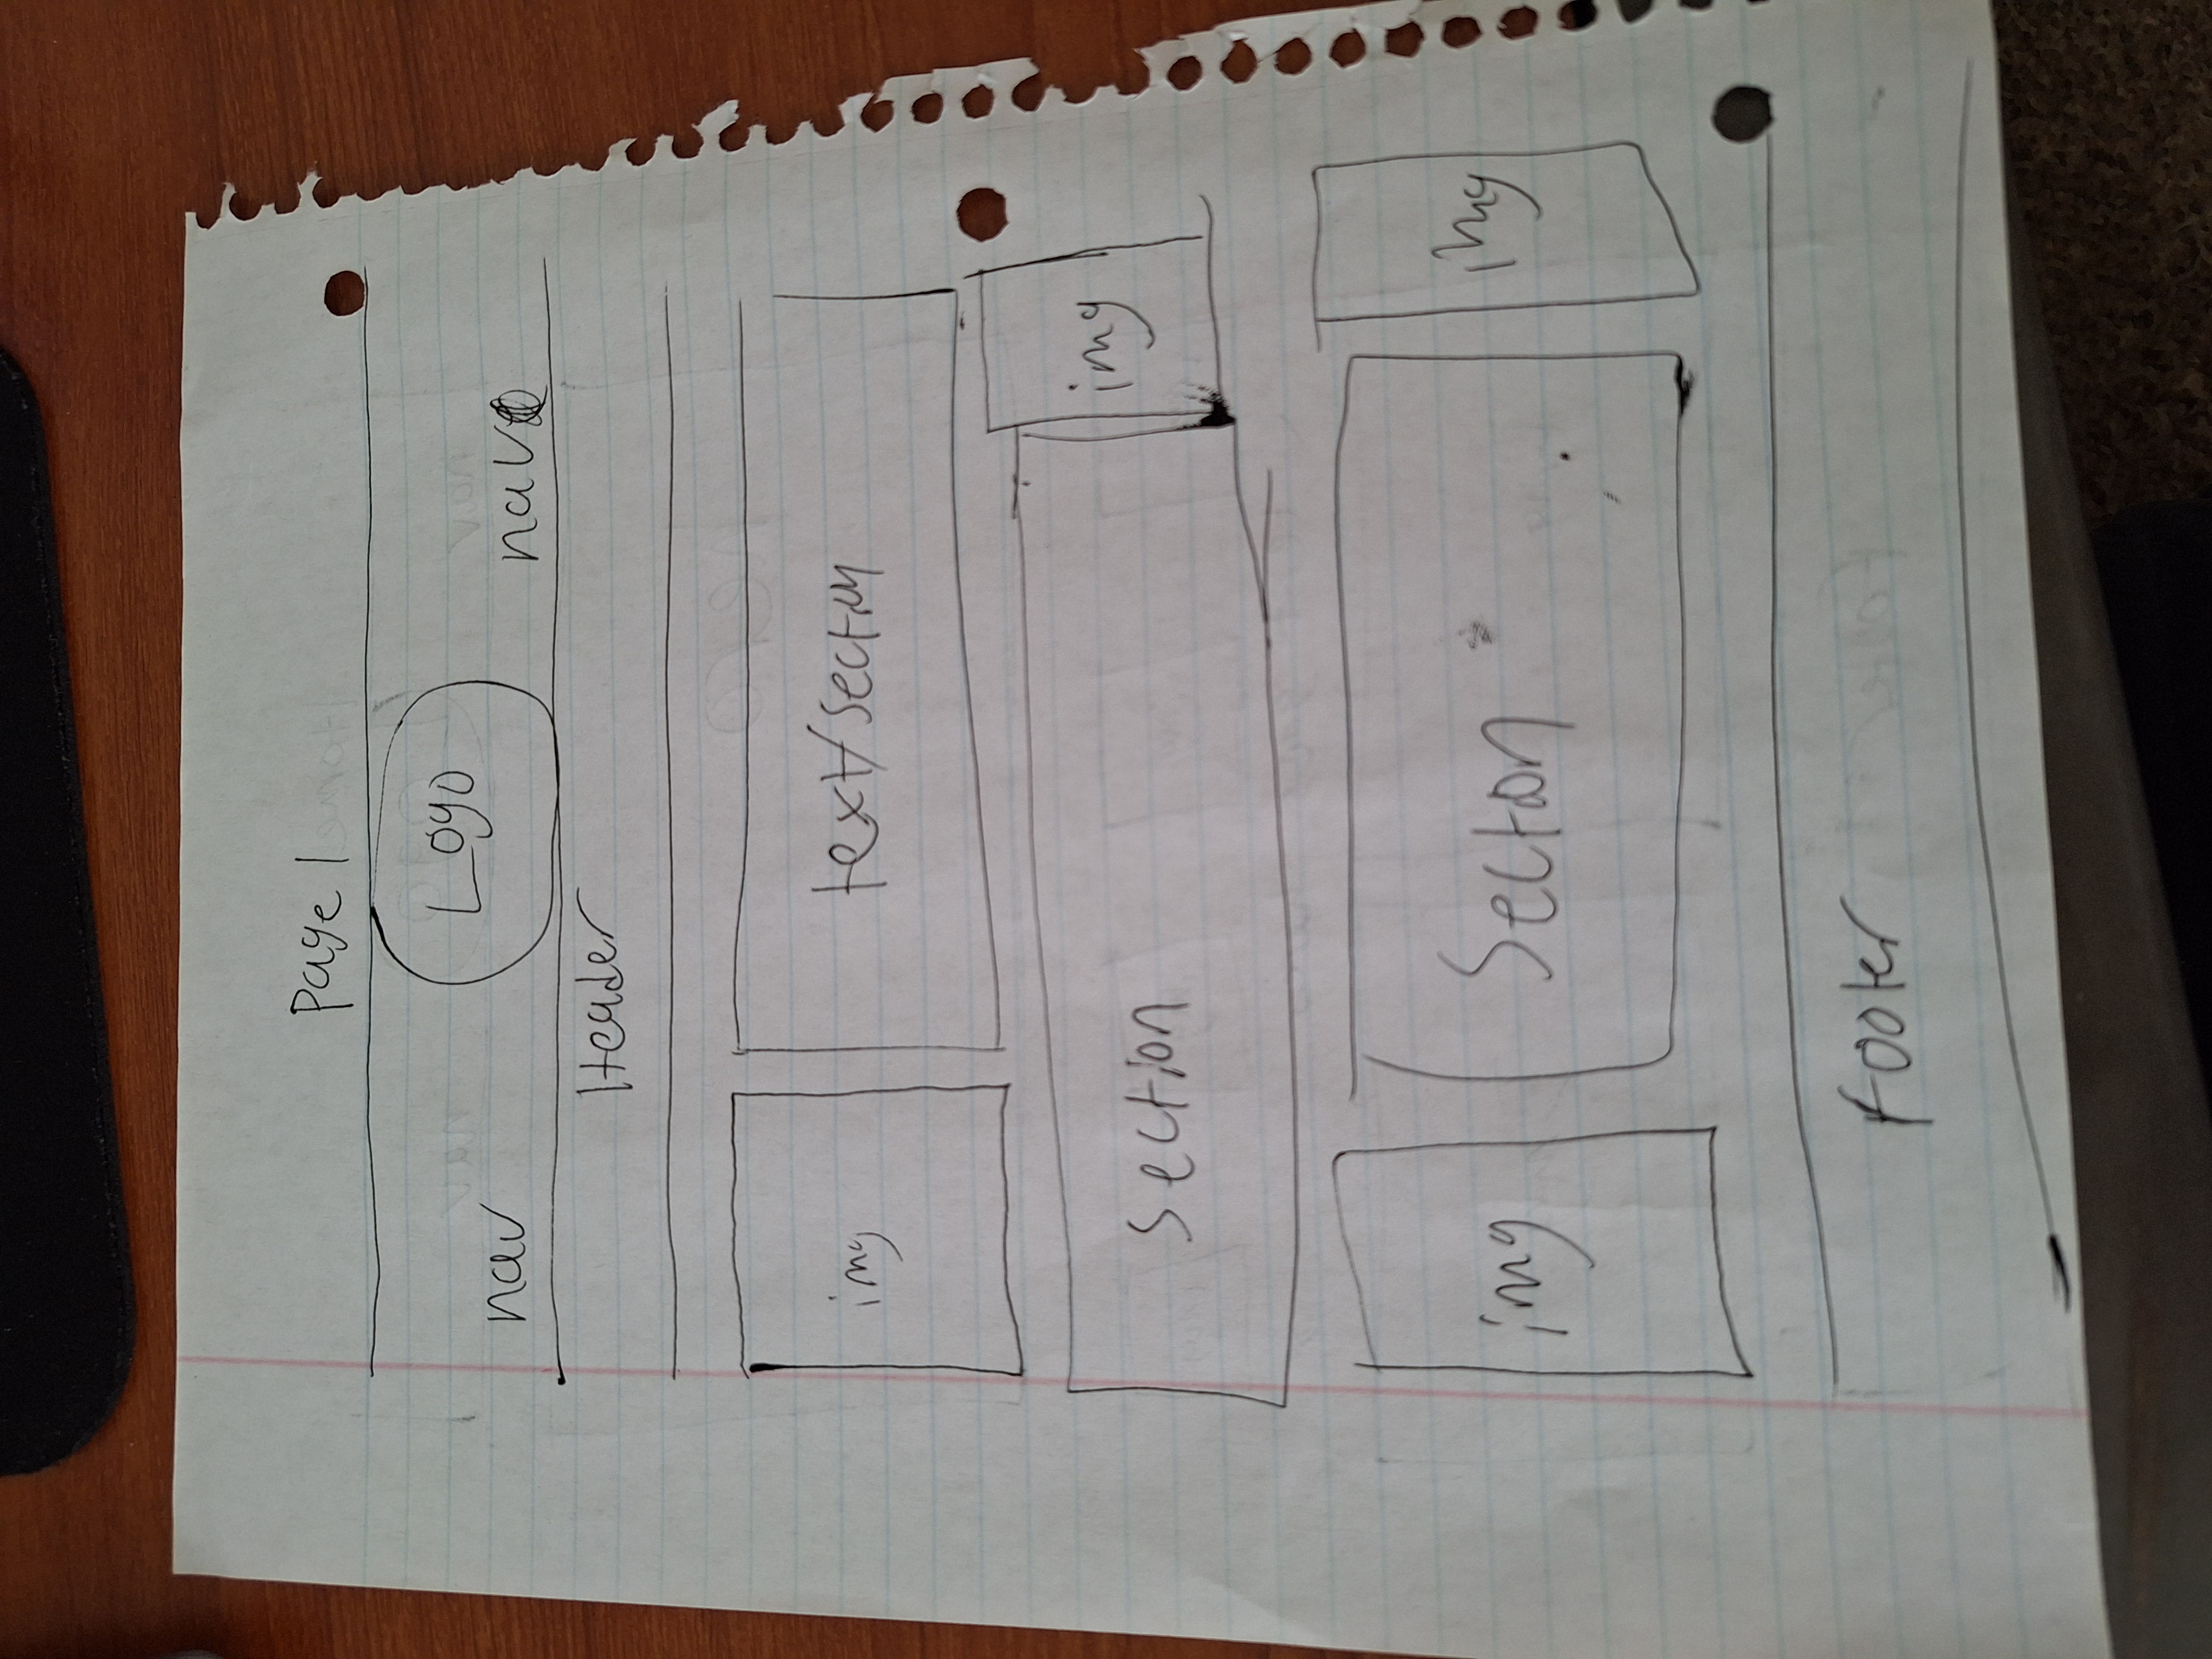 Page 1
Logo
nav nav
Header
img text/section
section img
img Section img
Footer